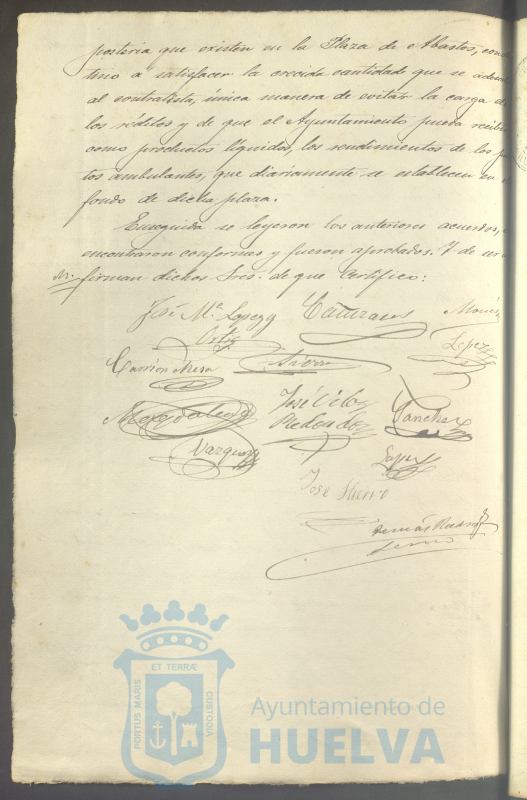 postería que existen en la Plaza de Abastos, con
tino a satisfacer la crecida cantidad que se adeuda
al contratista, única manera de evitar la carga de
los réditos y de que el Ayuntamiento pueda recibir
como productos líquidos, los rendimientos de los
tos ambulantes, que diariamente se establecen en el
fondo de dicha plaza.
Enseguida se leyeron los anteriores acuerdos,
encontraron conformes y fueron aprobados. Y de ser
firman dichos Sres. de que Certifico:
José Mª Lopez y
Ortiz
Lopez
Carrion Mesa
José Vilos
Redondo
Sanchez
Vazquez
José Hierro
ET TERRÆ
PORTUS MARIS
CUSTODIA
Ayuntamiento de
HUELVA